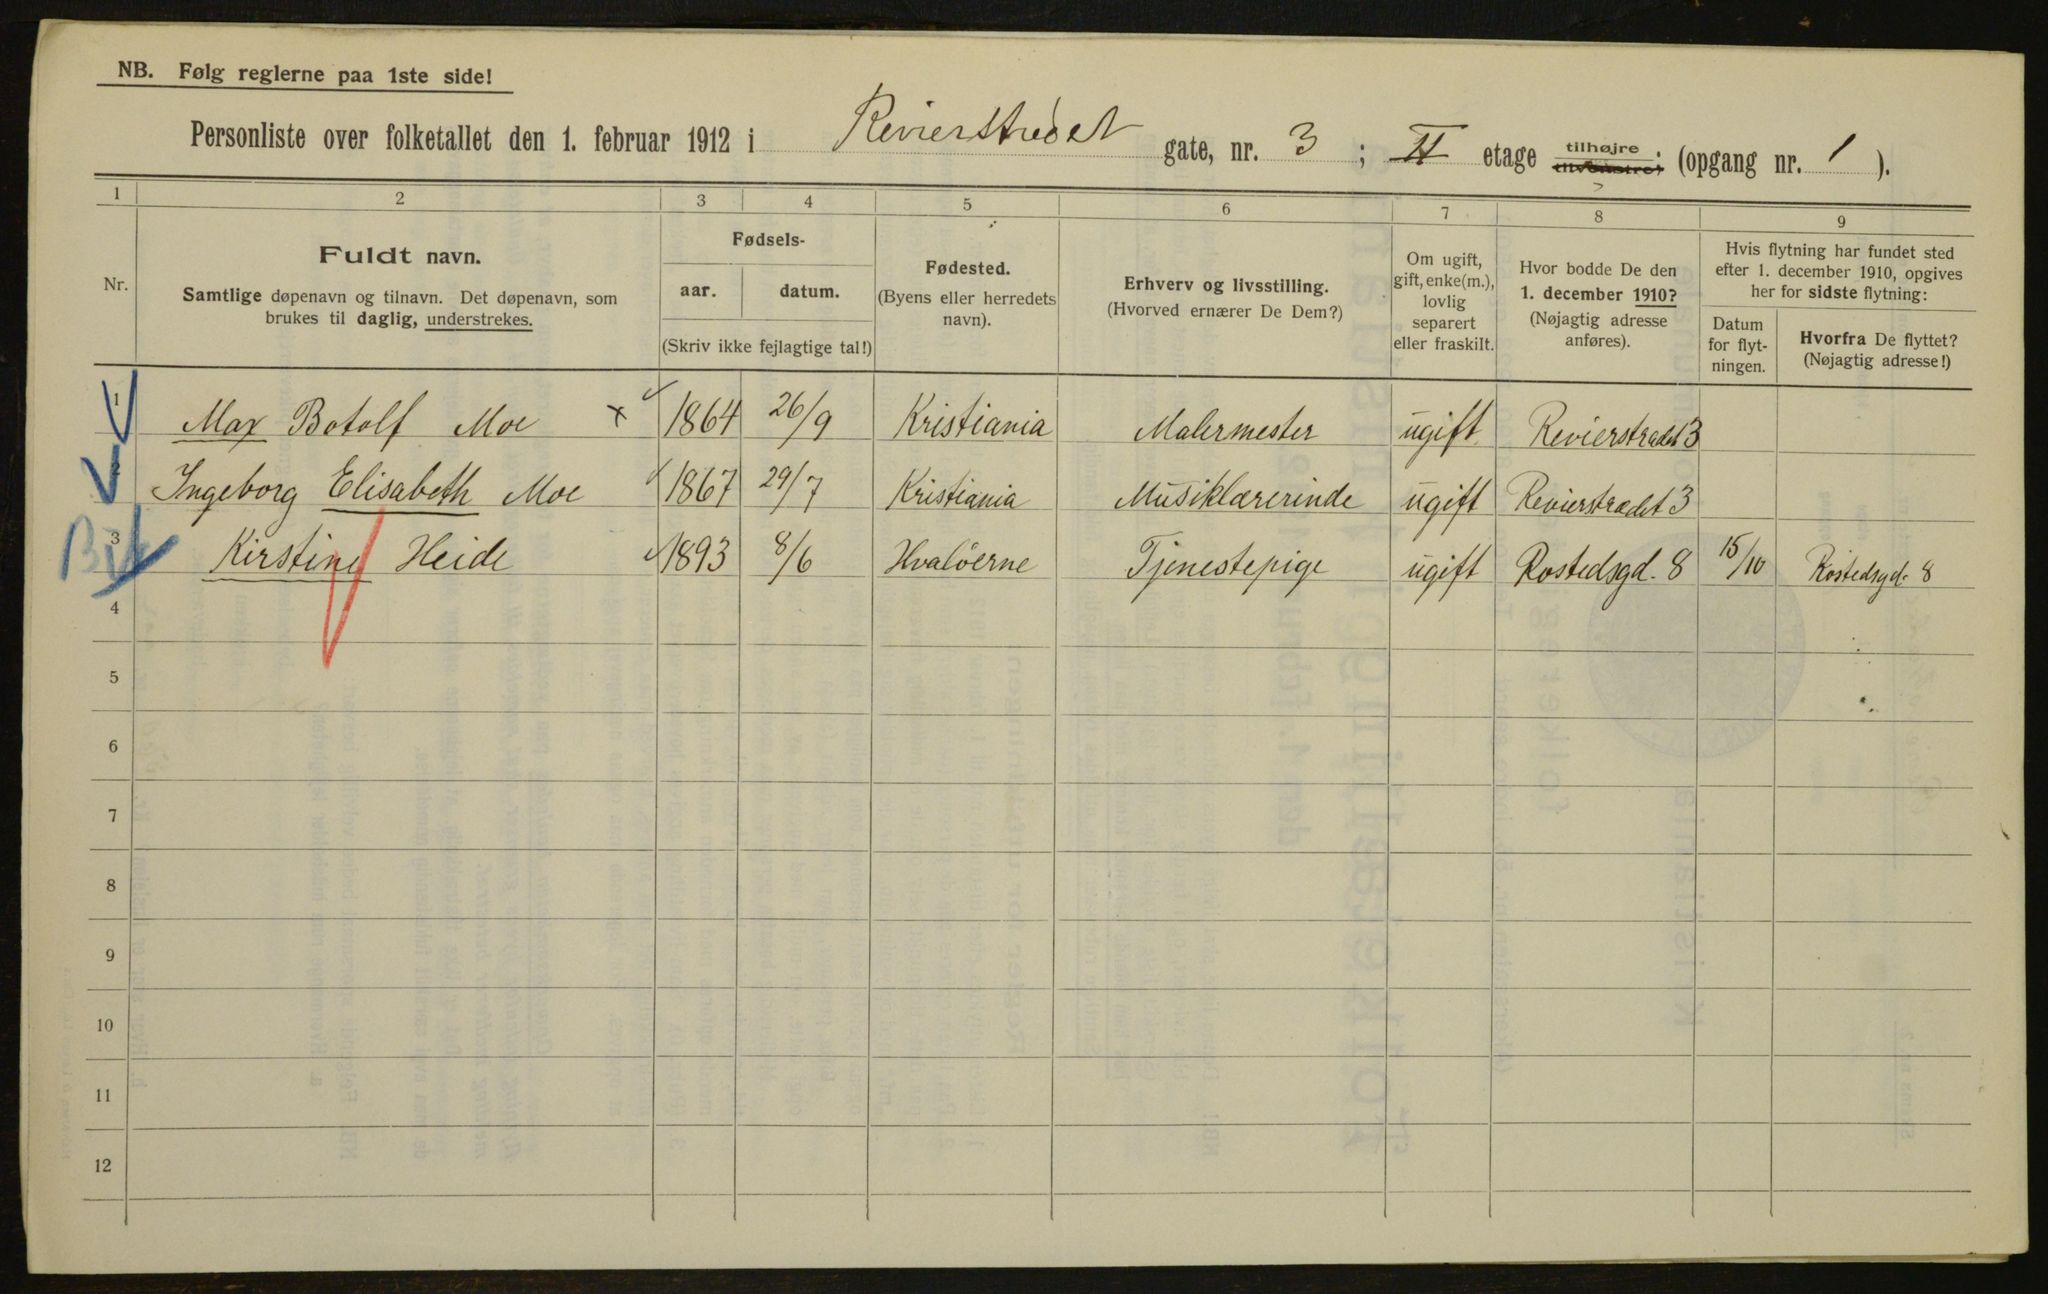 NB. Følg reglerne paa 1ste side!
Personliste over folketallet den 1. februar 1912 i Revierstrædet gate, nr. 3 ; II etage tilhøjre tilvenstre; (opgang nr. 1 ).
1 2 3 4 5 6 7 8 9
Nr.
Fuldt navn.
Samtlige døpenavn og tilnavn. Det døpenavn, som
brukes til daglig, understrekes.
Fødsels-
aar. datum.
(Skriv ikke fejlagtige tal!)
Fødested.
(Byens eller herredets
navn).
Erhverv og livsstilling.
(Hvorved ernærer De Dem?)
Om ugift,
gift, enke(m.),
lovlig
separert
eller fraskilt.
Hvor bodde De den
1. december 1910?
(Nøjagtig adresse
anføres).
Hvis flytning har fundet sted
efter 1. december 1910, opgives
her for sidste flytning:
Datum
for flyt-
ningen.
Hvorfra De flyttet?
(Nøjagtig adresse!)
1 Max Botolf Moe x 1864 26/9 Kristiania Malermester ugift Revierstrædet 3
2 Ingeborg Elisabeth Moe 1867 29/7 Kristiania Musiklærerinde ugift Revierstrædet 3
3 Kirstine Heide 1893 8/6 Hvaløerne Tjenestepige ugift Rostedsgd. 8 15/10 Rostedsgd. 8
4
5
6
7
8
9
10
11
12